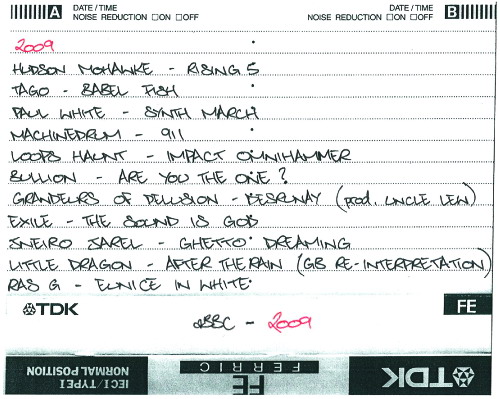 A DATE / TIME
NOISE REDUCTION □ON □OFF
DATE / TIME B
NOISE REDUCTION □ON □OFF
2009
HUDSON MOHAWKE - RISING 5
TAGO - BABEL FISH
PAUL WHITE - SYNTH MARCH
MACHINEDRUM - 911
LOOPS HAUNT - IMPACT OMNIHAMMER
BULLION - ARE YOU THE ONE?
GRANDEURS OF DELUSION - (prod. UNCLE LEW)
EXILE - THE SOUND IS GOD
JNEIRO JAREL - GHETTO DREAMING
LITTLE DRAGON - AFTER THE RAIN (GB RE-INTERPRETATION)
RAS G - EUNICE IN WHITE
TDK
FE
- 2009
TDK
FE
FERRIC
IECI/TYPEI
NORMAL POSITION